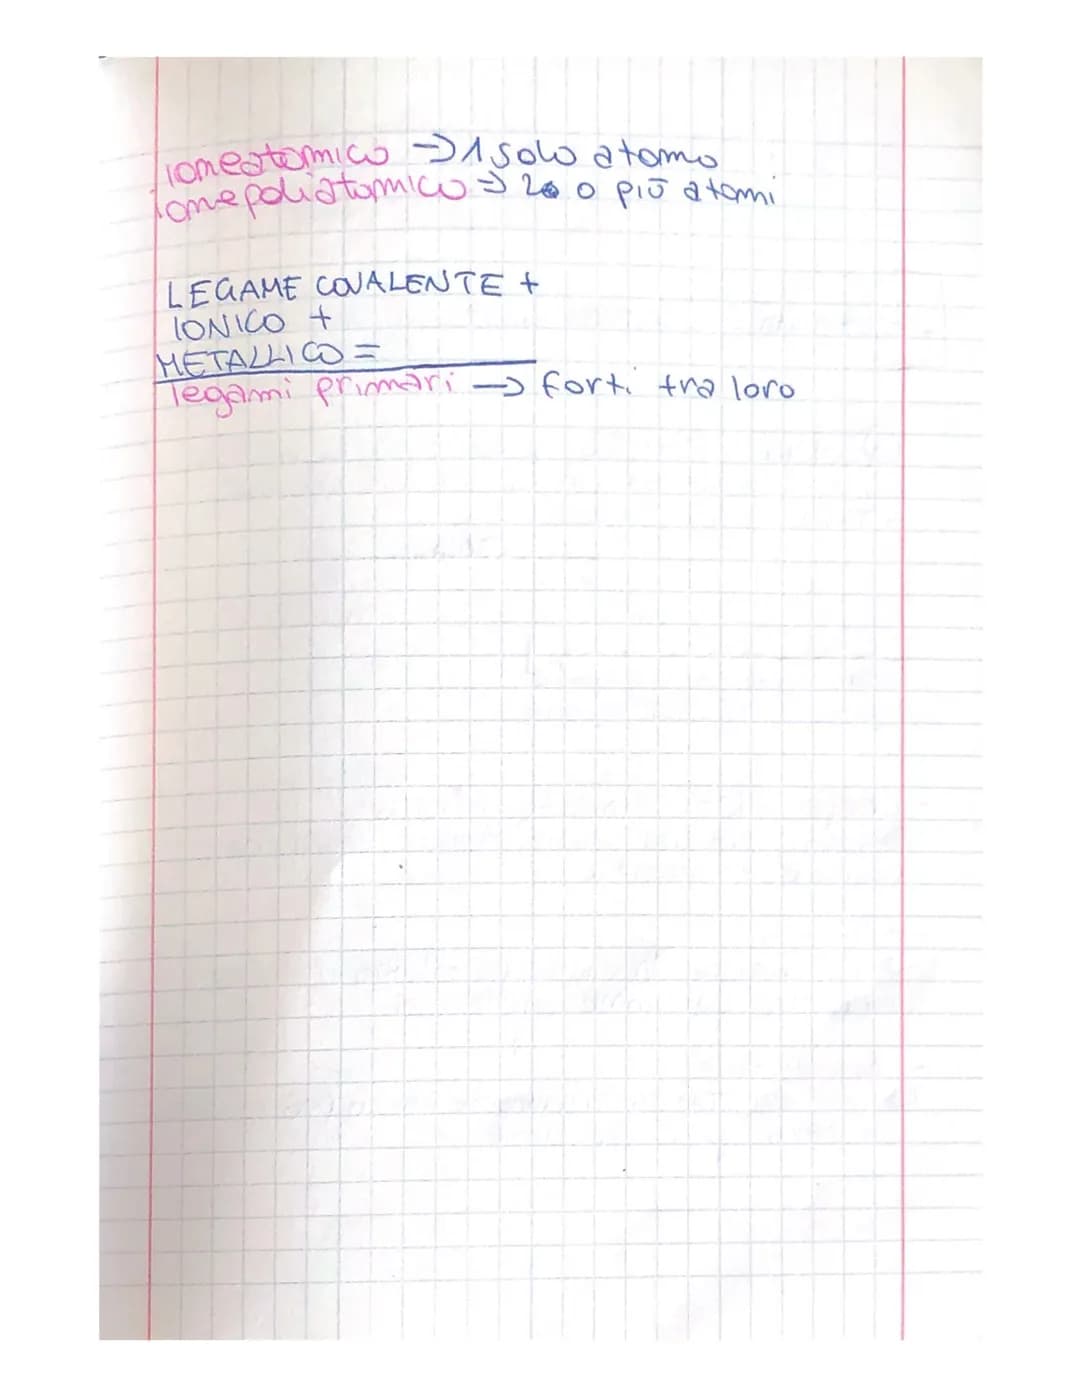 ione atomico → 1 solo atomo
ione poliatomico → 2 o più atomi
LEGAME COVALENTE +
IONICO +
METALLICO =
legami primari → forti tra loro